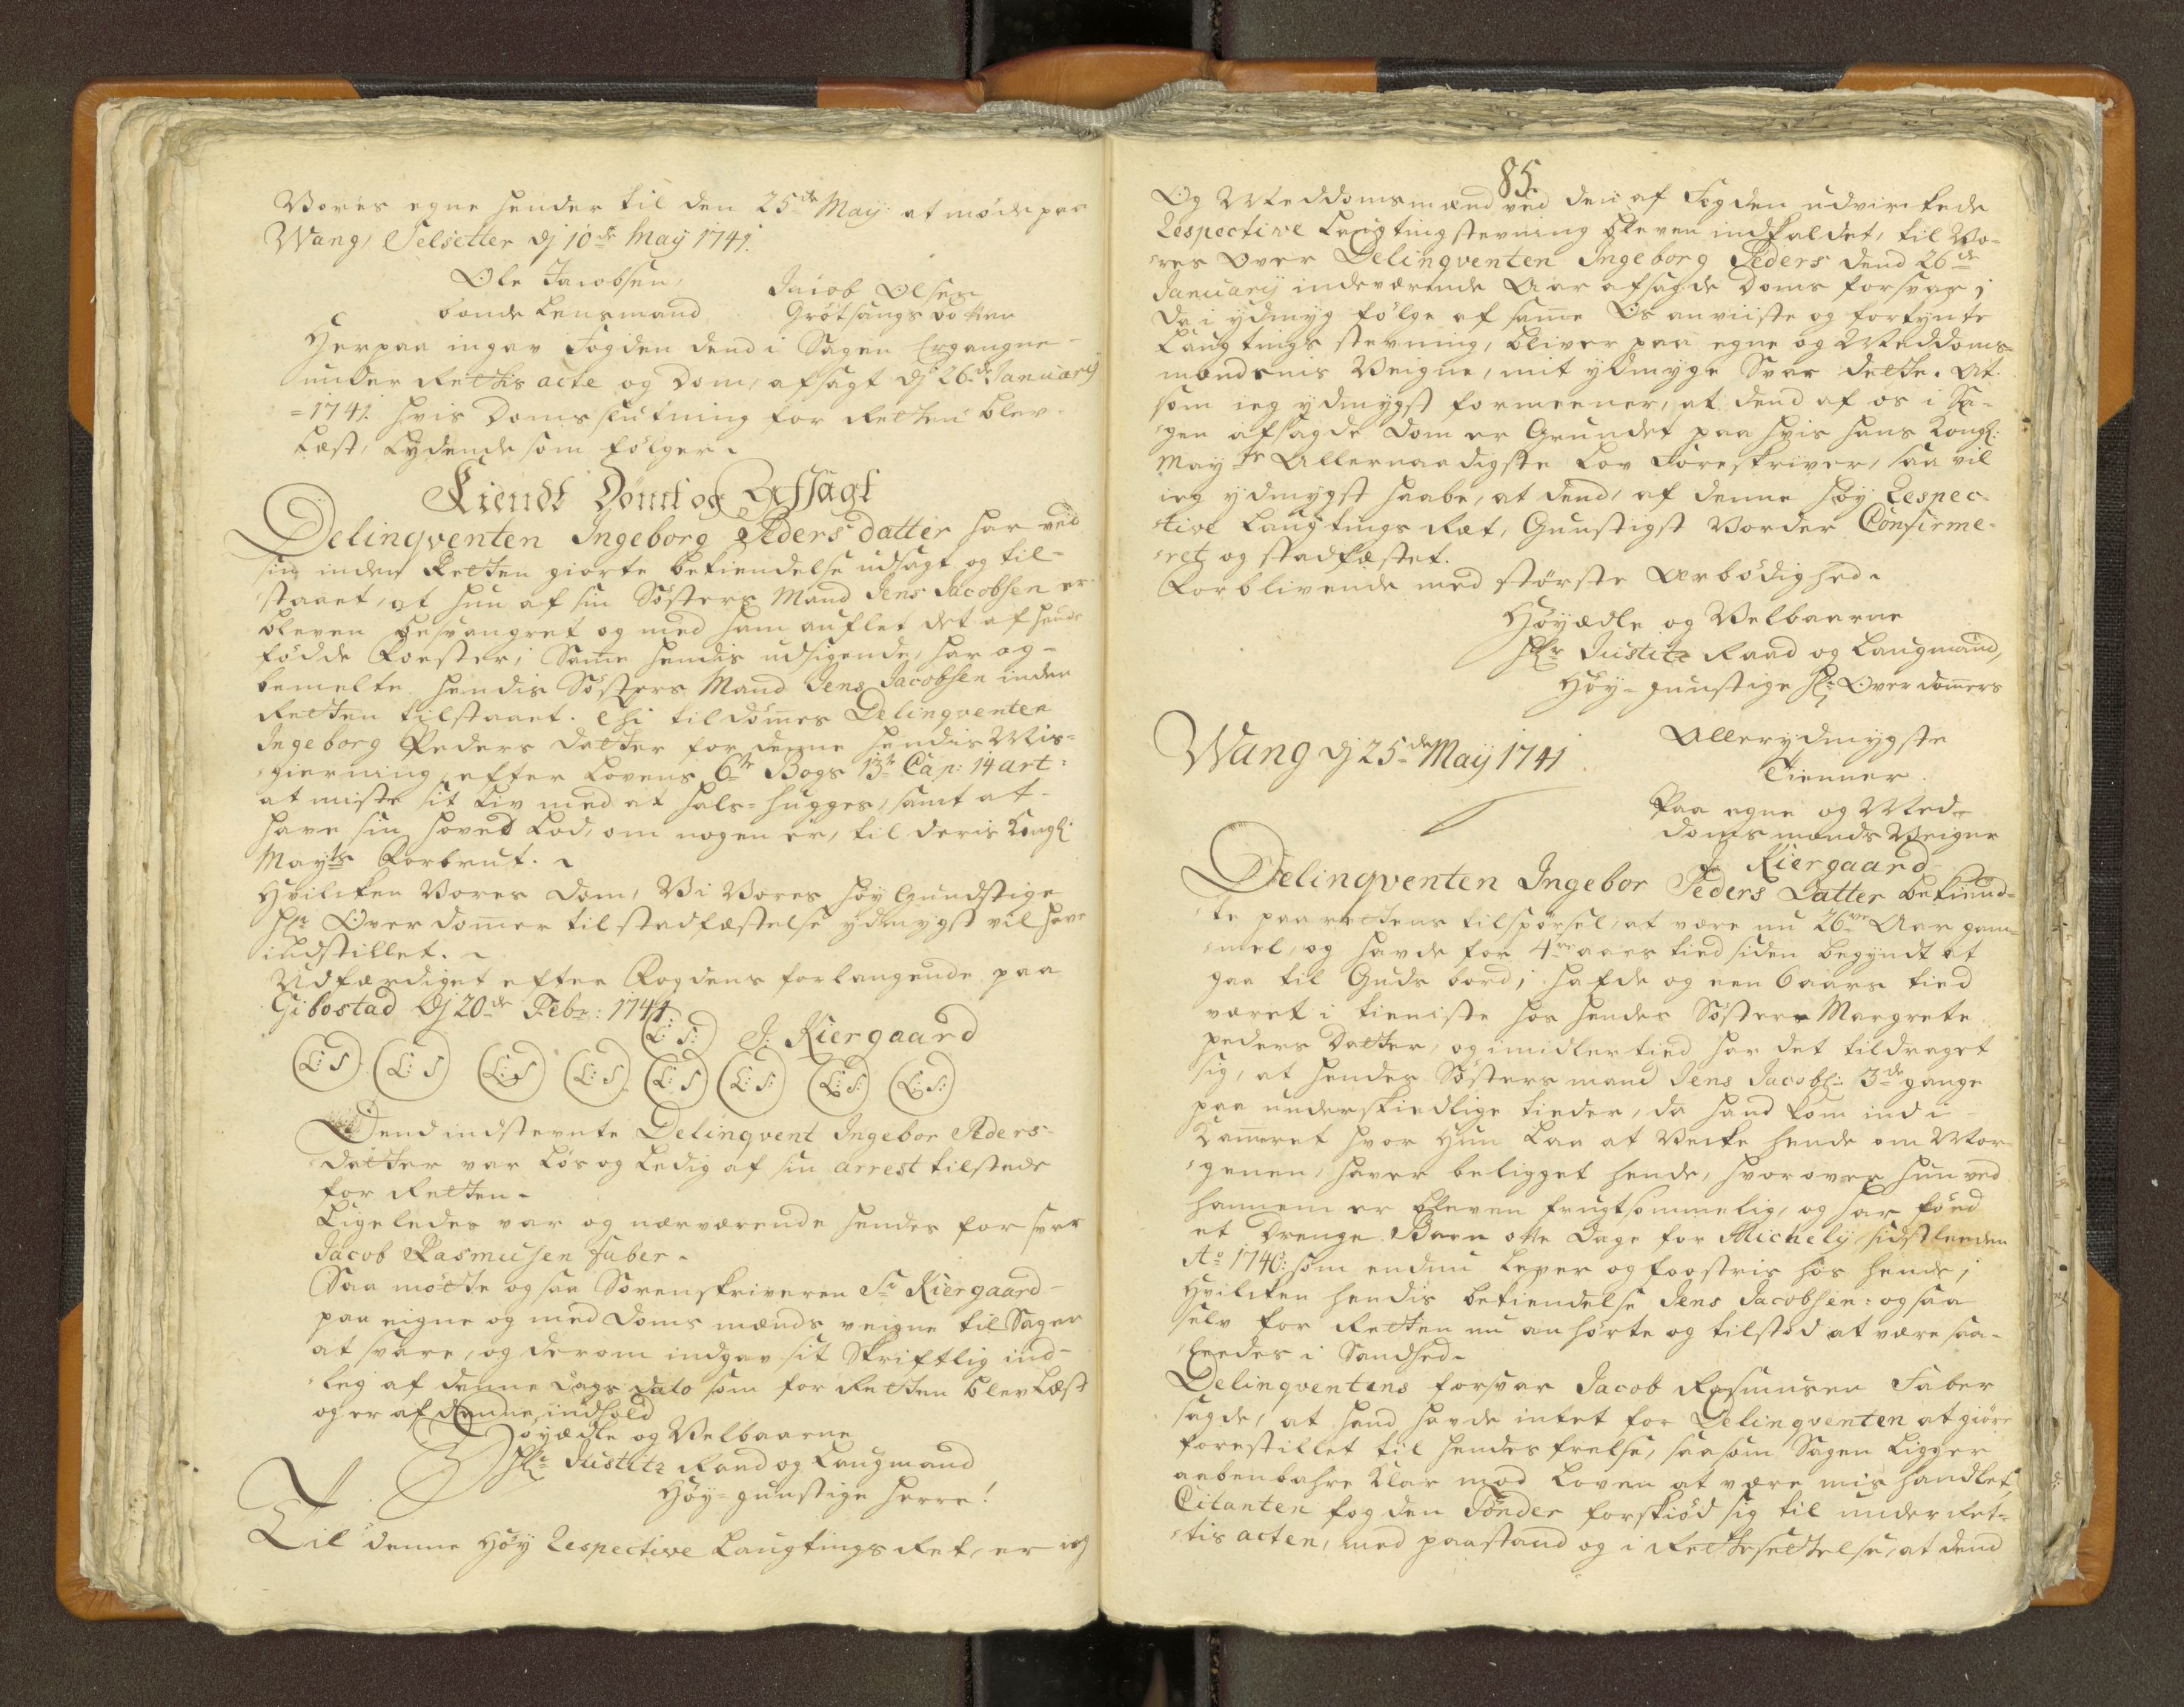 Vores egne hender til den 25de Maij at möde paa
Wang, Selsetter dj 10de Maij 1741.
Ole Jacobsen,
bonde Lensmand
Jacob Olsen
Grötsangs botten
Herpaa ingav Fogden dend i Sagen Ergangne
under Rettis acte og Dom, afsagt dj 26de Januarij
=1741. hvis Domsslutning for Retten blev
læst, lydende som fölger.
Kiendt Dömt og Affsagt
Delinqventen Ingeborg Pedersdatter har ved
sin inden Retten giorte bekiendelse udsagt og til-
staaet, at hun af sin Sösters Mand Jens Jacobsen er
bleven besvangret og med ham auflet det af hende
födde Foester; Same hendis udsigende, har og-
bemelte hendis Sösters Mand Jens Jacobsen inden
Retten tilstaaet. Thi tildömes Delinqventen
Ingeborg Peders datter for denne hendis Mis-
gierning, efter Lovens 6te Bogs 13de Cap: 14 art:
at miste sit Liv med at hals-hugges, samt at-
have sin hoved Lod, om nogen er, til deris Kongl:
Mayts forbrut.
Hvilcken Vores Dom, Vi Vores höy Gundstige
Hr Over domer til stadfæstelse ydmygst vil have
indstillet.
Udfærdiget efter Fogdens forlangende paa
Gibostad dj 20de Febr: 1741
L: S: J: Kiergaard
L: S L: S L: S L: S L: S L: S: L: S: L: S:
Dend indstevnte Delinqvent Ingebor Peders-
datter var lös og ledig af sin arrest tilstede
for Retten.
Ligeledes var og nærværende hendes forsvar
Jacob Rasmusen Faber.
Saa mötte og saa Sorenskriveren Sr Kiergaard
paa eigne og med Doms mænds veigne til Sagen
at svare, og derom indgav sit Skriftlig ind-
leg af denne Dags dato som for Retten blev læst
og er af denne indhold
Höyædle og Velbaarne
Hr Justitz Raad og Laugmand
Höy-gunstige Herre!
Til denne Höy Respective Laugtings Ret, er ieg
85.
Og Meddomsmænd ved den af Fogden udvirckede
Respective Laugtingstevning bleven indkaldet, til Vo-
res over Delinqventen Ingeborg Peders dend 26de
Januarij indeværende Aar afsagde Doms forsvar;
Da i ydmyg fölge af same Os anviiste og forkynte
Laugtings stevning, bliver paa egne og Meddoms-
mændenis Veigne, mit ydmyge Svar dette. At
som ieg ydmygst formeener, at dend af os i Sa-
gen afsagde Dom er Grundet paa hvis hans Kongl:
Mayts Allernaadigste Lov Foreskriver, saa vil
ieg ydmygst haabe, at dend, af denne höy Respec-
tive Laugtings Ret, Gunstigst vorder Confirme-
ret og stadfæstet.
Forblivende med störste Ærbödighed.
Höyædle og Velbaarne
Hr Justitz Raad og Laugmand,
Höy-gunstige Hr Over domers
Wang dj 25de Maij 1741
Allerydmygste
Tienner
Paa egne og Med-
doms mænds Veigne
J: Kiergaard
Delinqventen Ingebor Peders Datter bekiend-
te paa rettens tilspörsel, at være nu 26ve Aar gam-
mel, og havde for 4re aars tied siden begyndt at
gaa til Guds bord; hafde og een 6 aars tied
været i tieniste hos hendes Söster Margrete
peders Datter, og imidlertied har det tildraget
sig, at hendes Sösters mand Jens Jacobs: 3de gange
paa underskiedlige tieder, da hand kom ind i
Kameret hvor hun laa at Vecke hende om Mor-
genen, haver beligget hende, hvorover hun ved
hannem er bleven frugtsommelig, og har föed
et Drenge Barn otte Dage for Michely sidstleeden
Ao 1740: som endnu lever og foostris hos hende;
Hvilcken hendis bekiendelse Jens Jacobsen: ogsaa
selv for Retten nu anhörte og tilstod at være saa-
leedes i Sandhed.
Delinqventens forsvar Jacob Rasmusen Faber
sagde, at hand havde intet for Delinqventen at giöre
forestillet til hendes frelse, saasom Sagen ligger
aabenbahre klar mod loven at være mis handlet,
Citanten fogden Tönder forskiöd sig til under Ret-
tis acten, med paastand og i Rettesettelse, at dend